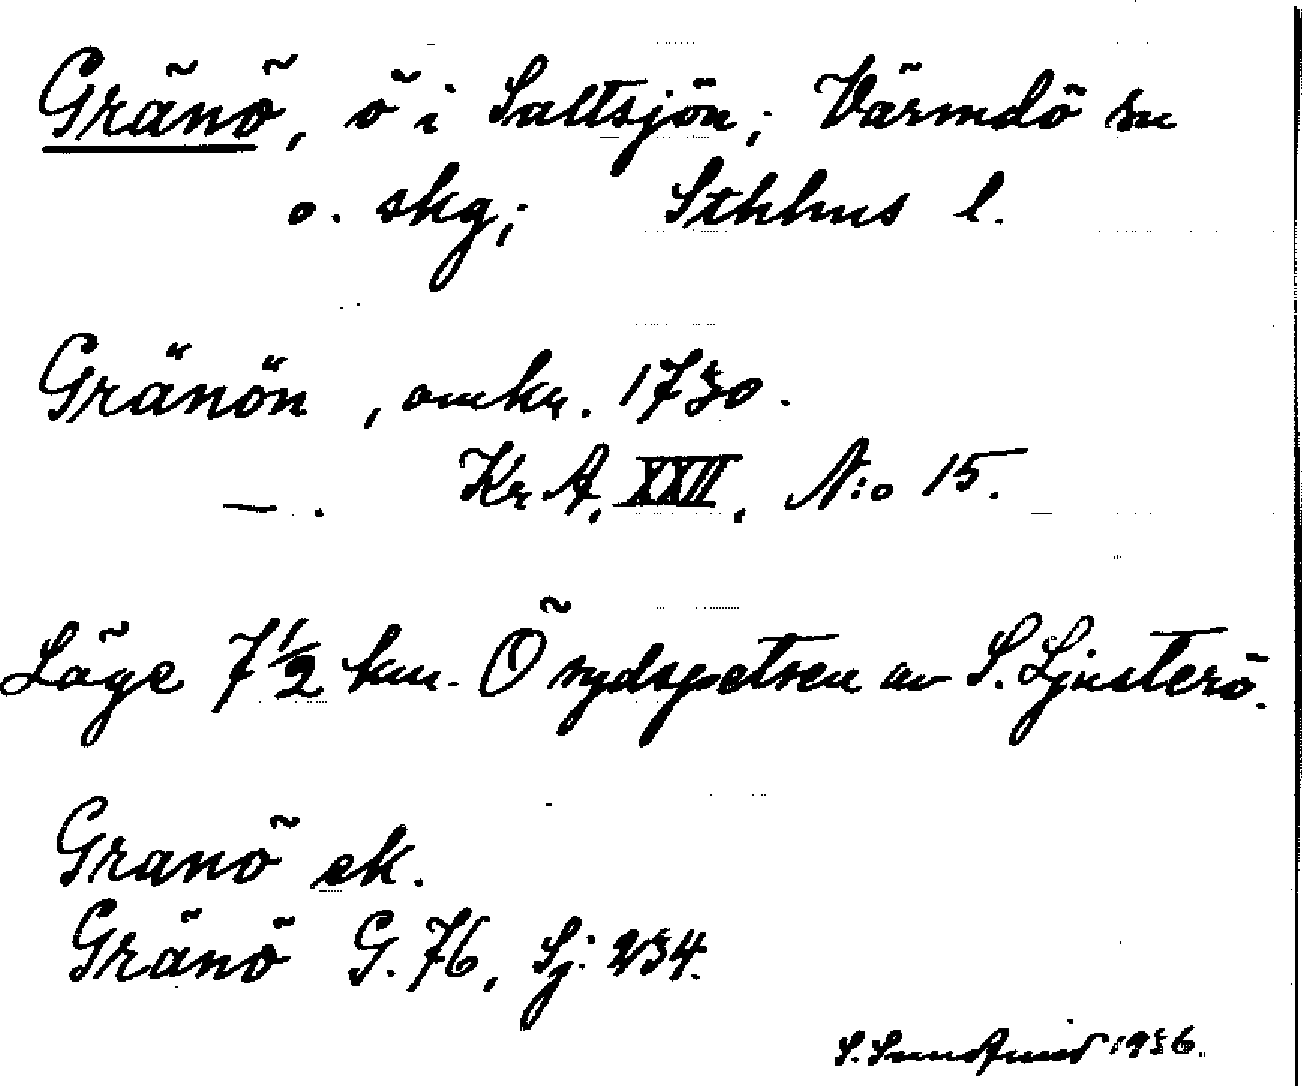 Gränö, ö i Saltsjön; Värmdö sn
o. skg; Sthlms l.
Gränön, omkr. 1730.
— . Kr A. XXII. N:o 15.
Läge 7½ km. Ö sydspetsen av S. Ljusterö.
Granö ek.
Gränö G. 76, Sj: 234.
S. 1936.